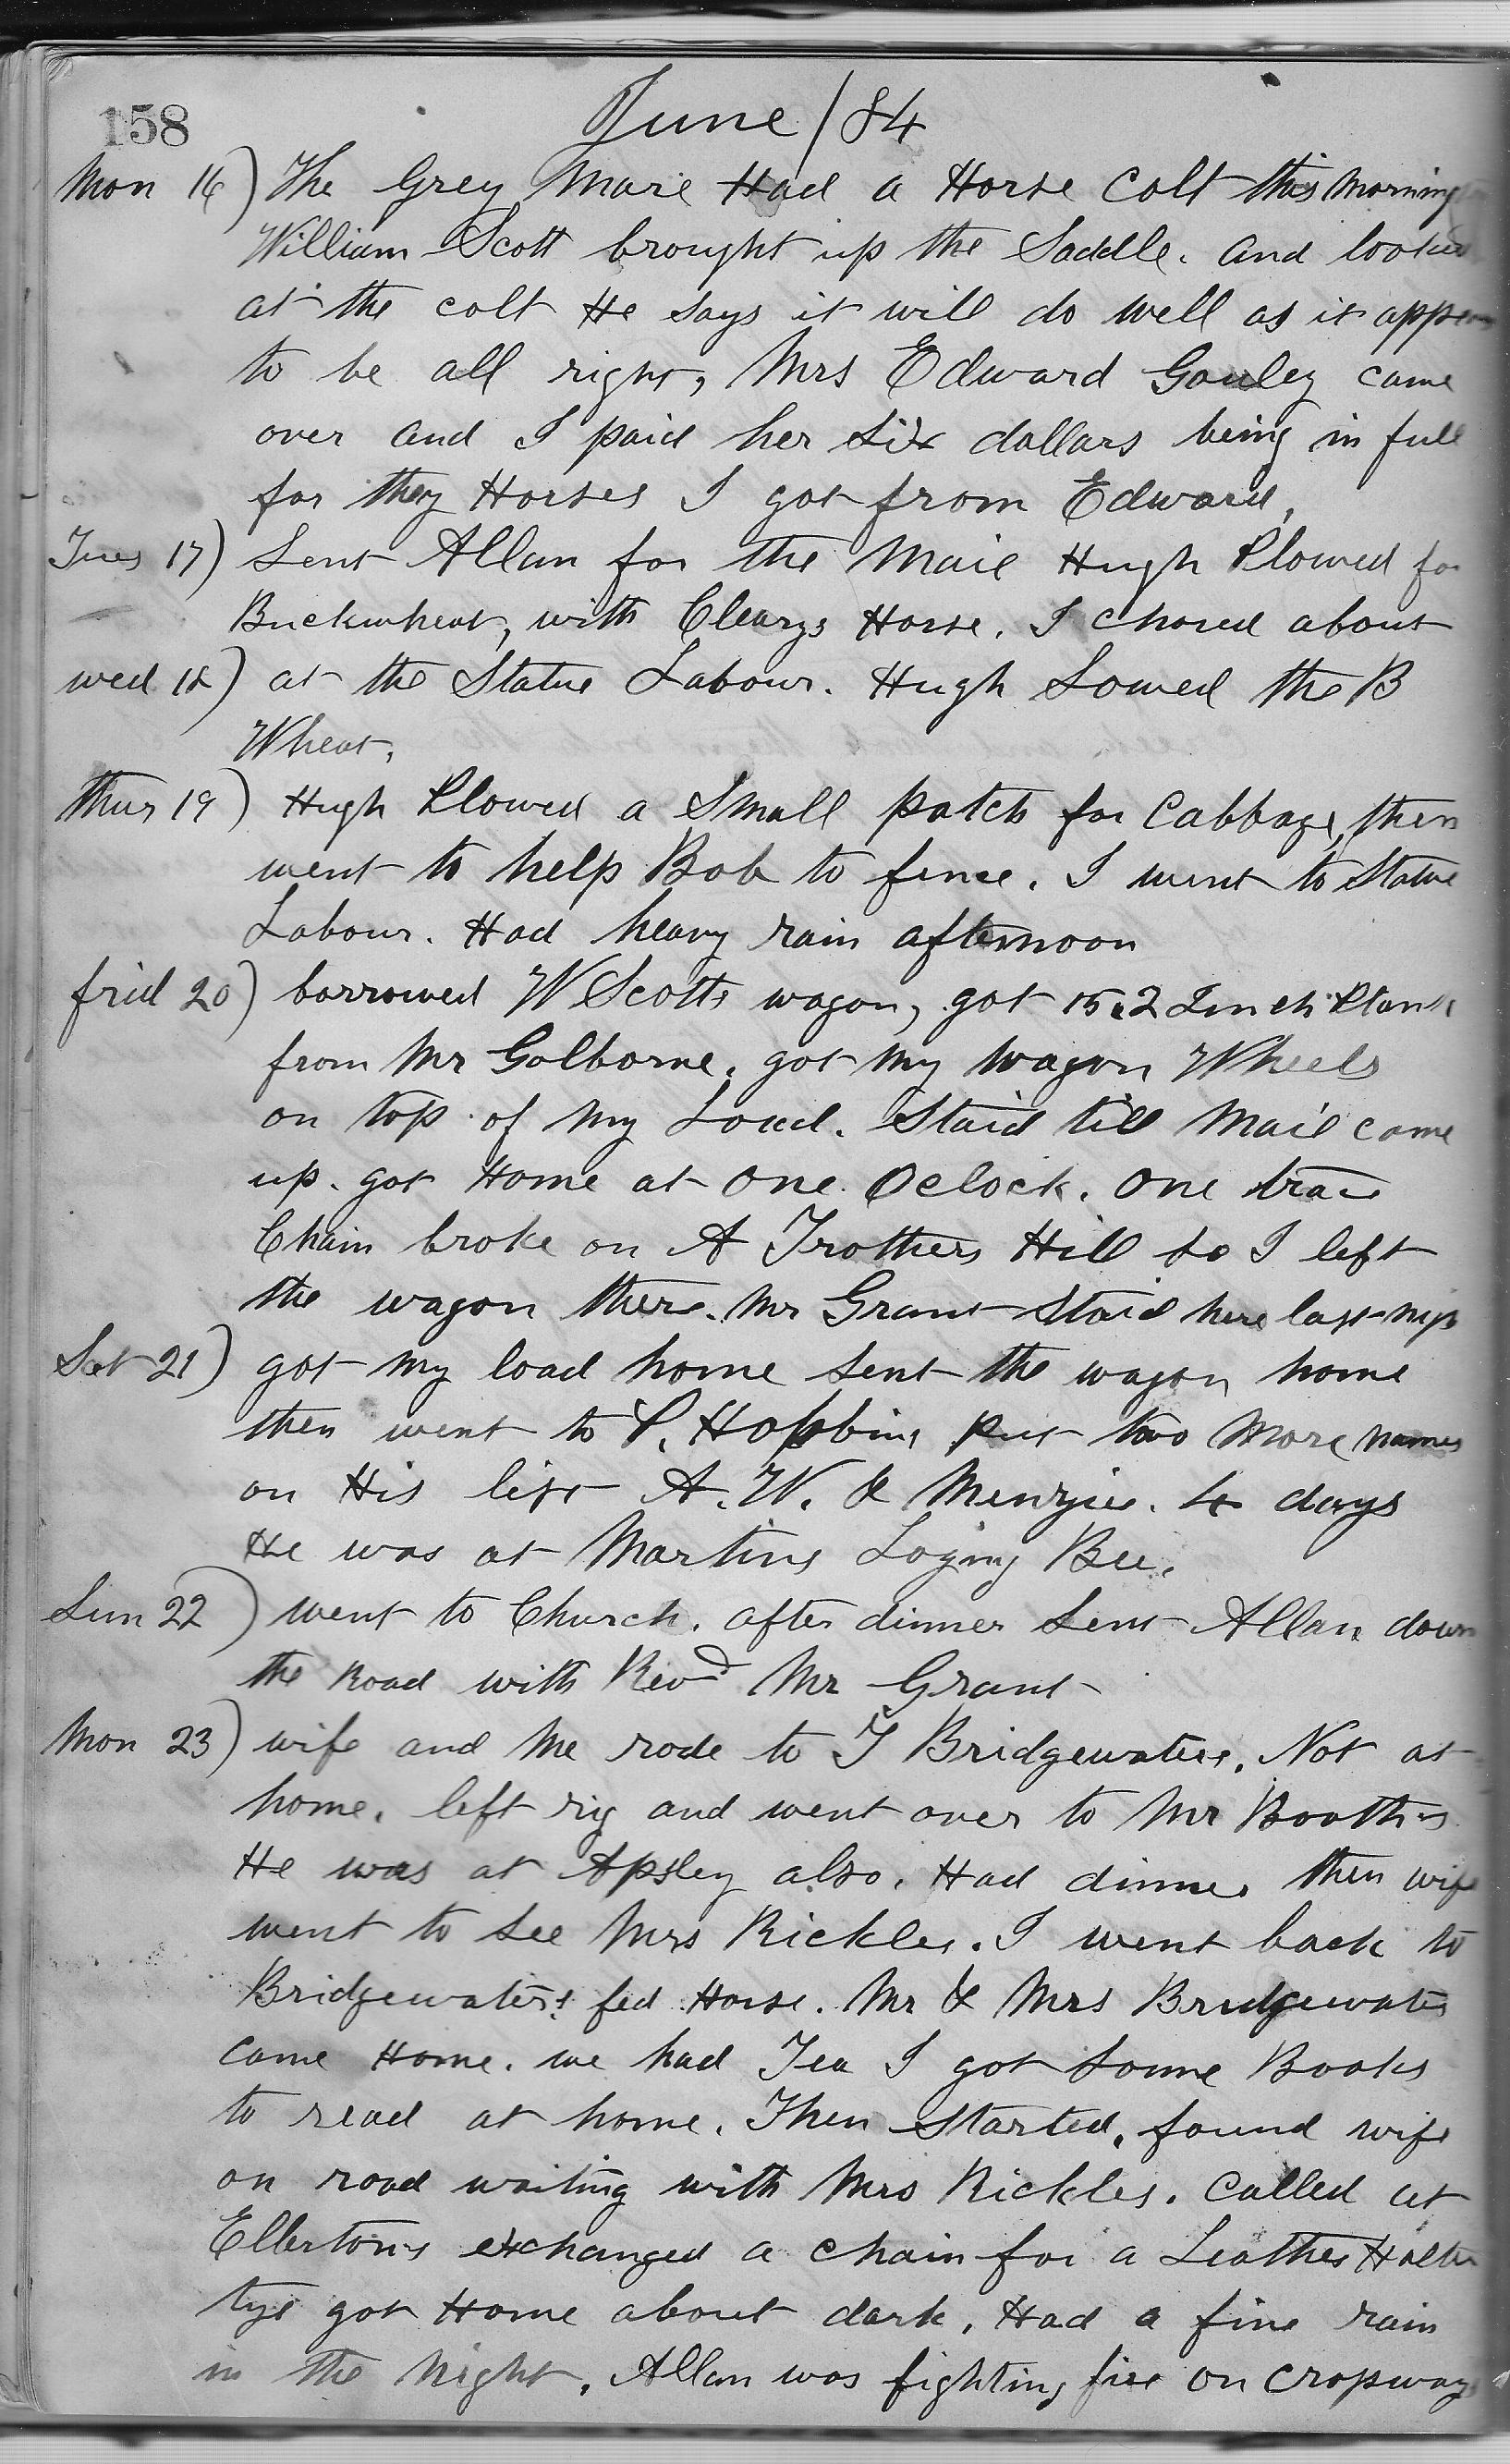 158
June / 84
Mon 16) The Grey Mare Had a Horse Colt this Morning
William Scott brought up the Saddle. and looked
at the colt He says it will do well as it appears
to be all right, Mrs Edward Gouley came
over and I paid her six dollars being in full
for they Horses I got from Edward,
Tues 17) Sent Allan for the Mail Hugh Plowed for
Buckwheat, with Clearys Horse. I chored about
Wed 18) at the Statue Labour. Hugh Sowed the B
Wheat.
Thur 19) Hugh Plowed a Small patch for Cabbage, then
went to help Bob to fence. I went to Statue
Labour. Had heavy rain afternoon
frid 20) borrowed W Scotts wagon, got 15.2 Inch Plank
from Mr Golborne. got my wagon Wheels
on top of my Load. Staid till Mail came
up. got Home at One Oclock. One trace
Chain broke on A Trothers Hill so I left
the wagon there. Mr Grant Staid here last night
Sat 21) got my load home sent the wagon home
then went to P. Hopbins put two more names
on His list A. W. & Menzies. 4 days
He was at Martins Loging Bee.
Sun 22) went to Church. after dinner Sent Allan down
the Road with Revd Mr Grant
Mon 23) wife and Me rode to T Bridgewaters. Not at
home. left rig and went over to Mr Booths
He was at Apsley also. Had dinner then wife
went to see Mrs Rickles. I went back to
Bridgewaters fed Horse. Mr & Mrs Bridgewater
came Home. we had Tea I got some Books
to read at home. Then Started. found wife
on road waiting with Mrs Rickles. Called at
Ellertons exchanged a chain for a Leather Halter
got Home about dark. Had a fine rain
in the Night. Allan was fighting fire on